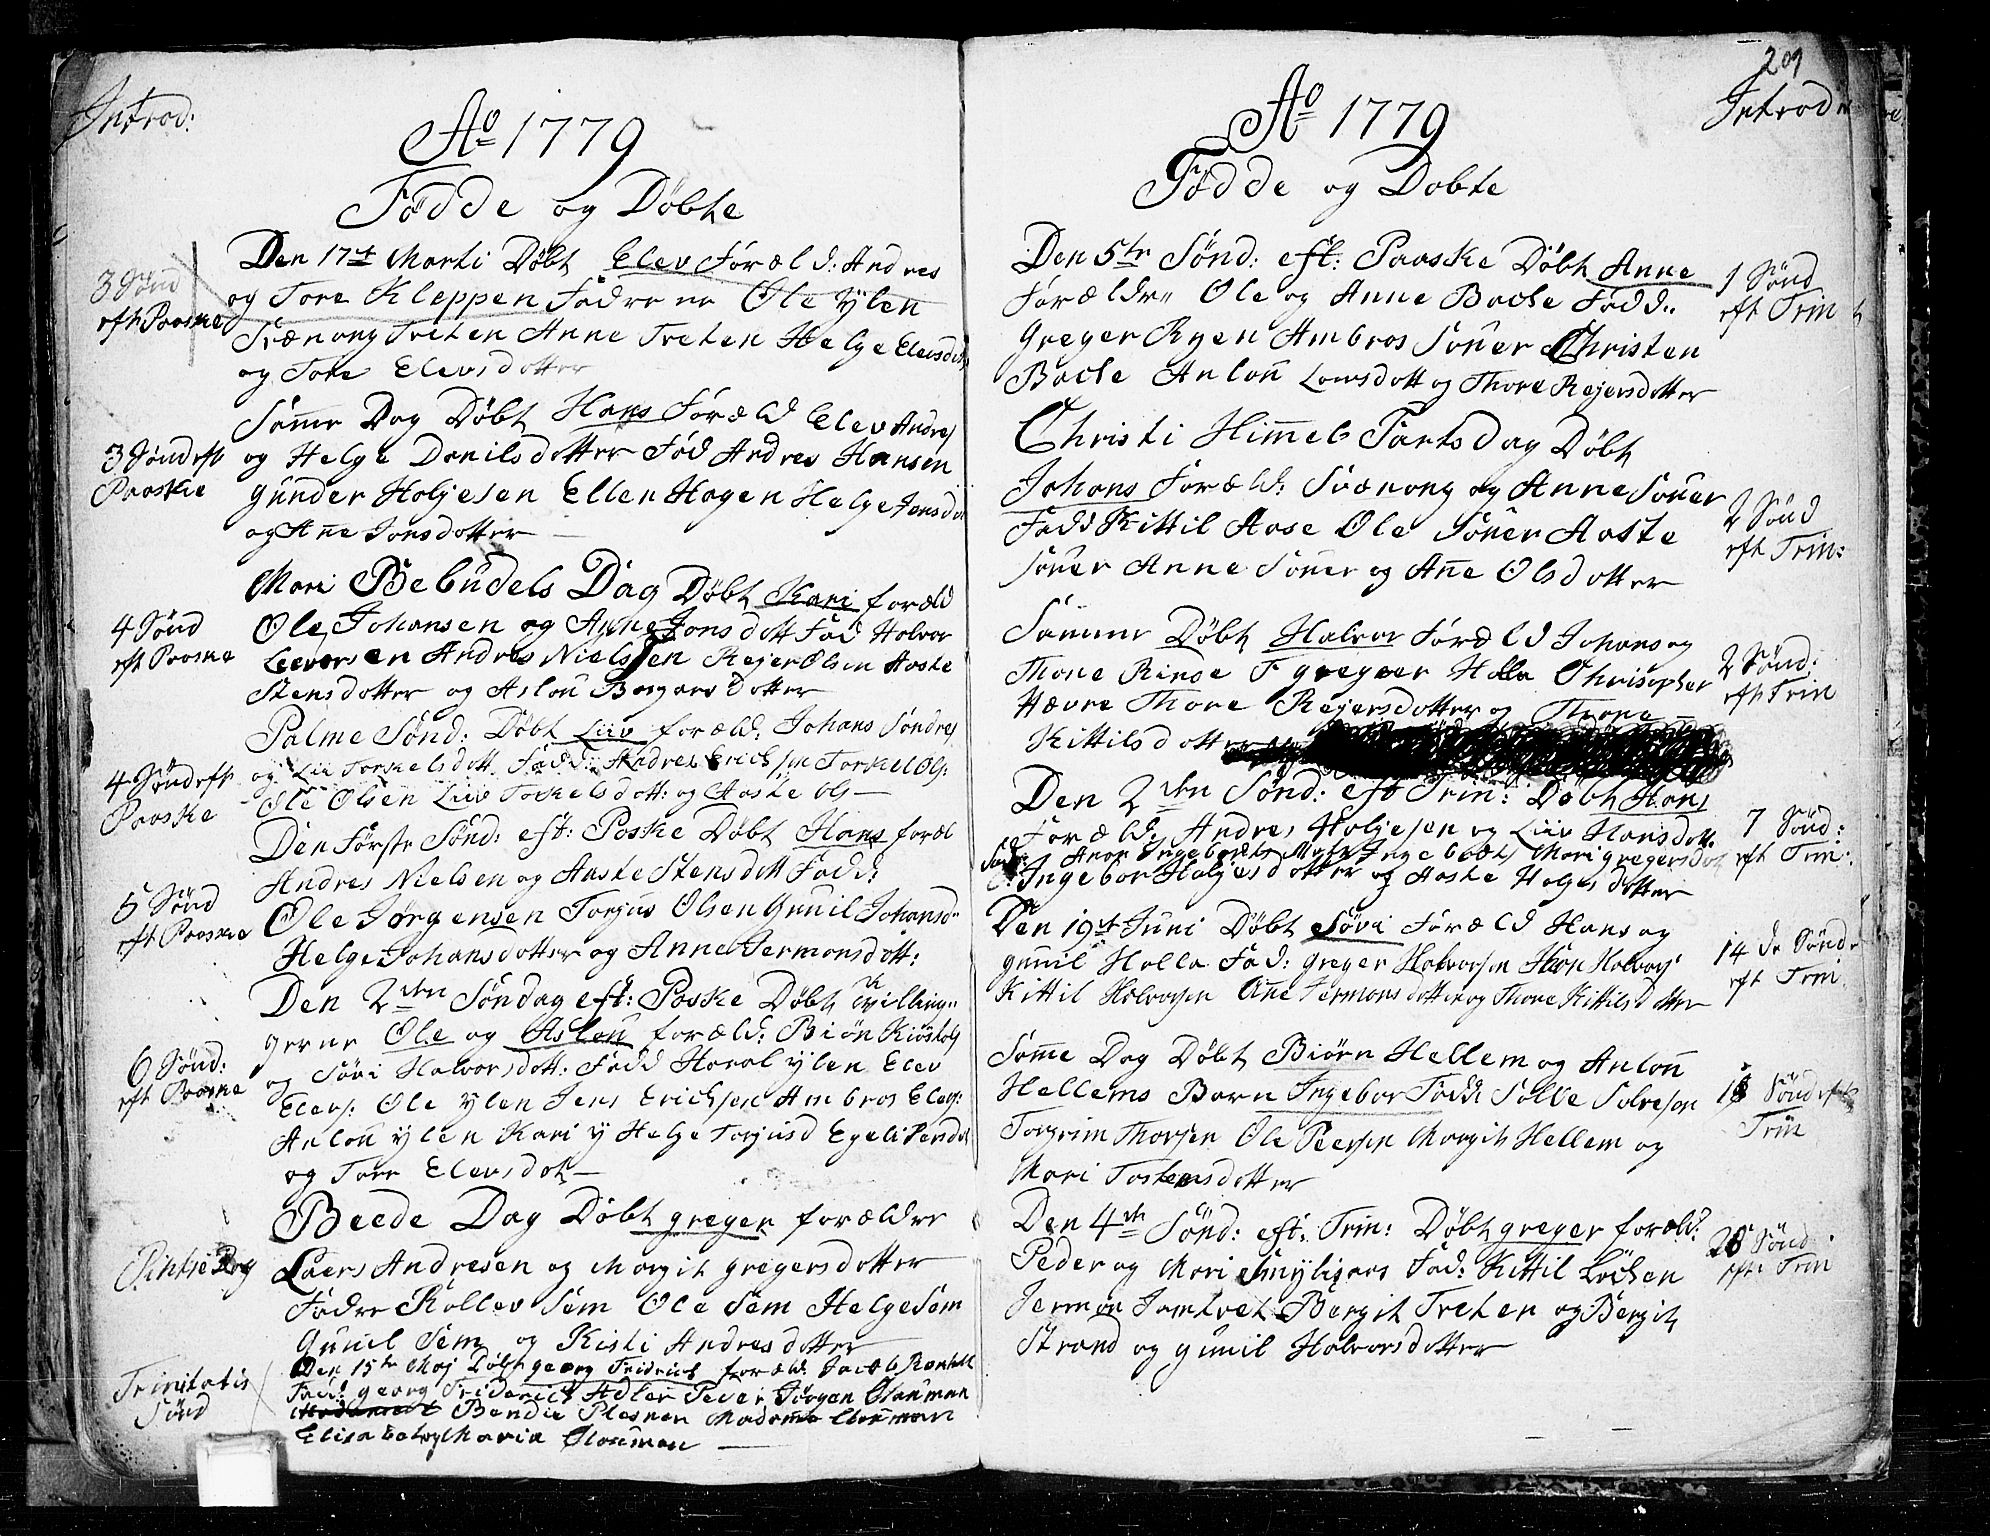 Introd:
Ao 1779
Födde og Döbte
3 Sönd
eft Paaske
Den 17t Marti Döbt Elev Foræld: Andres
og Tore Kleppen Faderne Ole Ylen
Trænong Treten Anne Treten Helge Elevsdott
og Tore Elevsdotter
3 Sönd eft
Paaskie
Samme Dag Döbt Hans Foræld Elev Andres
og Helge Danilsdotter Fad Andres Hansen
Gunder Holjesen Ellen Hagen Helge Jensd
og Anne Jonsdotter
4 Sönd
eft Paaske
Mari Bebudels Dag Döbt Kari foræld
Ole Johansen og Anne Jonsdott Fad Halvor
Andres Nielssen Rejer Olsen Aaste
Stensdotter og Aslou dotter
4 Sönd eft
Paaske
Palme Sönd: Döbt Liiv foræld: Johans Söndres
og Lii Torkelsdott Fadd: Andres Erichsen Torkel Ols:
Ole Olsen Liiv Torkelsdott: og Aaste Ols
5 Sönd
eft Paaske
Den Förste Sönd: eft: Poske Döbt Hans foræl
Andres Nielsen og Aaste Stensdott Fadd:
Ole Jørgensen Torjus Olsen Gunil Johansd
Helge Johansdotter og Anne Jermonsdott:
6 Sönd:
eft Paaske
Den 2den Söndag eft: Poske Döbt Tvilling
gerne Ole og Aslou foræld: Biön
og Sövi Halvorsdott: Fadd Haral Ylen Elev
Elevs: Ole Ylen Jens Erichsen Ambros Elevs:
Anlou Ylen Kari Y Helge Torjusd Egeli Persdot
og Tore Elevsdot
Pintse Dag
Beede Dag Döbt greger forældre
Laers Andresen og Margit gregersdotter
Fadre Rollev Sem Ole Sem Helge Sem
Gunil Sem og Kisti Andresdotter
Trinitatis
Sönd
Den 15te Maj Döbt georg Fridrich foræld: Jacob
Fadd: georg Friderich Adler Peder Jörgen Clauman
Bendie Plesner Madamme Clauman
Elisabet og Maria Clauman
209
Introd
Ao 1779
Födde og Döbte
Den 5te Sönd: eft: Paaske Döbt Anne
Forældre Ole og Anne Bache Fadd:
Greger Ryen Ambros Söuer Christen
Bache Anloü Larsdott og Thore Rejersdotter
1 Sönd
eft Trin
Christi Himmels Fartsdag Döbt
Johans Foræld: Svænong og Anne Söuer
Fadd Kittil Aase Ole Söuer Aaste
Söuer Anne Söuer og Ane Olsdotter
2 Sönd
eft Trin:
Samme Döbt Halvor Foræld Johans og
Thone Rinde F greger Holla Christopher
Hævre Thore Rejersdotter og Thone
Kittilsdotter
2 Sönd:
eft Trin
Den 2den Sönd: eft Trin: Döbt Hans
Foræld: Andres Holjesen og Liiv Hansdott
Mari gregersdot
Ingebor Holjesdotter og Aaste Holjesdotter
7 Sönd:
eft Trin:
Den 19t Juni Döbt Sövi Foræld Hans og
gunil Holla Fad: greger Halvorsen Halvors
Kittil Halvorsen Ane Jermonsdotter og Thore Kittilsdotter
14 de Sönd
eft Trin
Samme Dag Döbt Biörn Hellem og Anlou
Hellems Barn Ingebor Fadd: Sölve Solvesøn
Torgrim Thorsen Ole Peersen Margit Hellem og
Mari Tostensdotter
Sönd eft
Trin
Den 4de Sönd: eft: Trin: Döbt greger foræld:
Peder og Mari Fad: Kittil
Jermon Jamtvet Bergit Treten og Bergit
Strand og gunil Halvorsdotter
Sönd
eft Trin